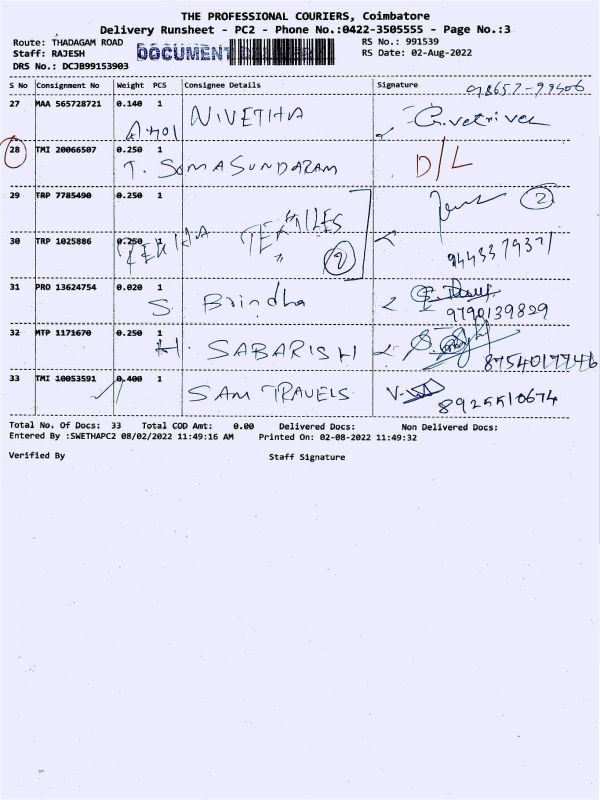 THE PROFESSIONAL COURIERS, Coimbatore
Delivery Runsheet - PC2 - Phone No.:0422-3505555 - Page No.:3
Route: THADAGAM ROAD
Staff: RAJESH
DRS No.: DCJB99153903
DOCUMENT
RS No.: 991539
RS Date: 02-Aug-2022
S No Consignment No Weight PCS Consignee Details Signature
27 MAA 565728721 0.140 1 NIVETHA
28 TMI 20066507 0.250 1 D/L
T. SOMASUNDARAM
29 TRP 7785490 0.250 1 2
30 TRP 1025886 0.250 1 TEXTILES 2
9443379371
31 PRO 13624754 0.020 1
S. Brindha 9790139829
32 MTP 1171670 0.250 1
H. SABARISH 8754017746
33 TMI 10053591 0.400 1
SAM TRAVELS 8925510674
Total No. Of Docs: 33 Total COD Amt: 0.00 Delivered Docs: Non Delivered Docs:
Entered By :SWETHAPC2 08/02/2022 11:49:16 AM Printed On: 02-08-2022 11:49:32
Verified By Staff Signature